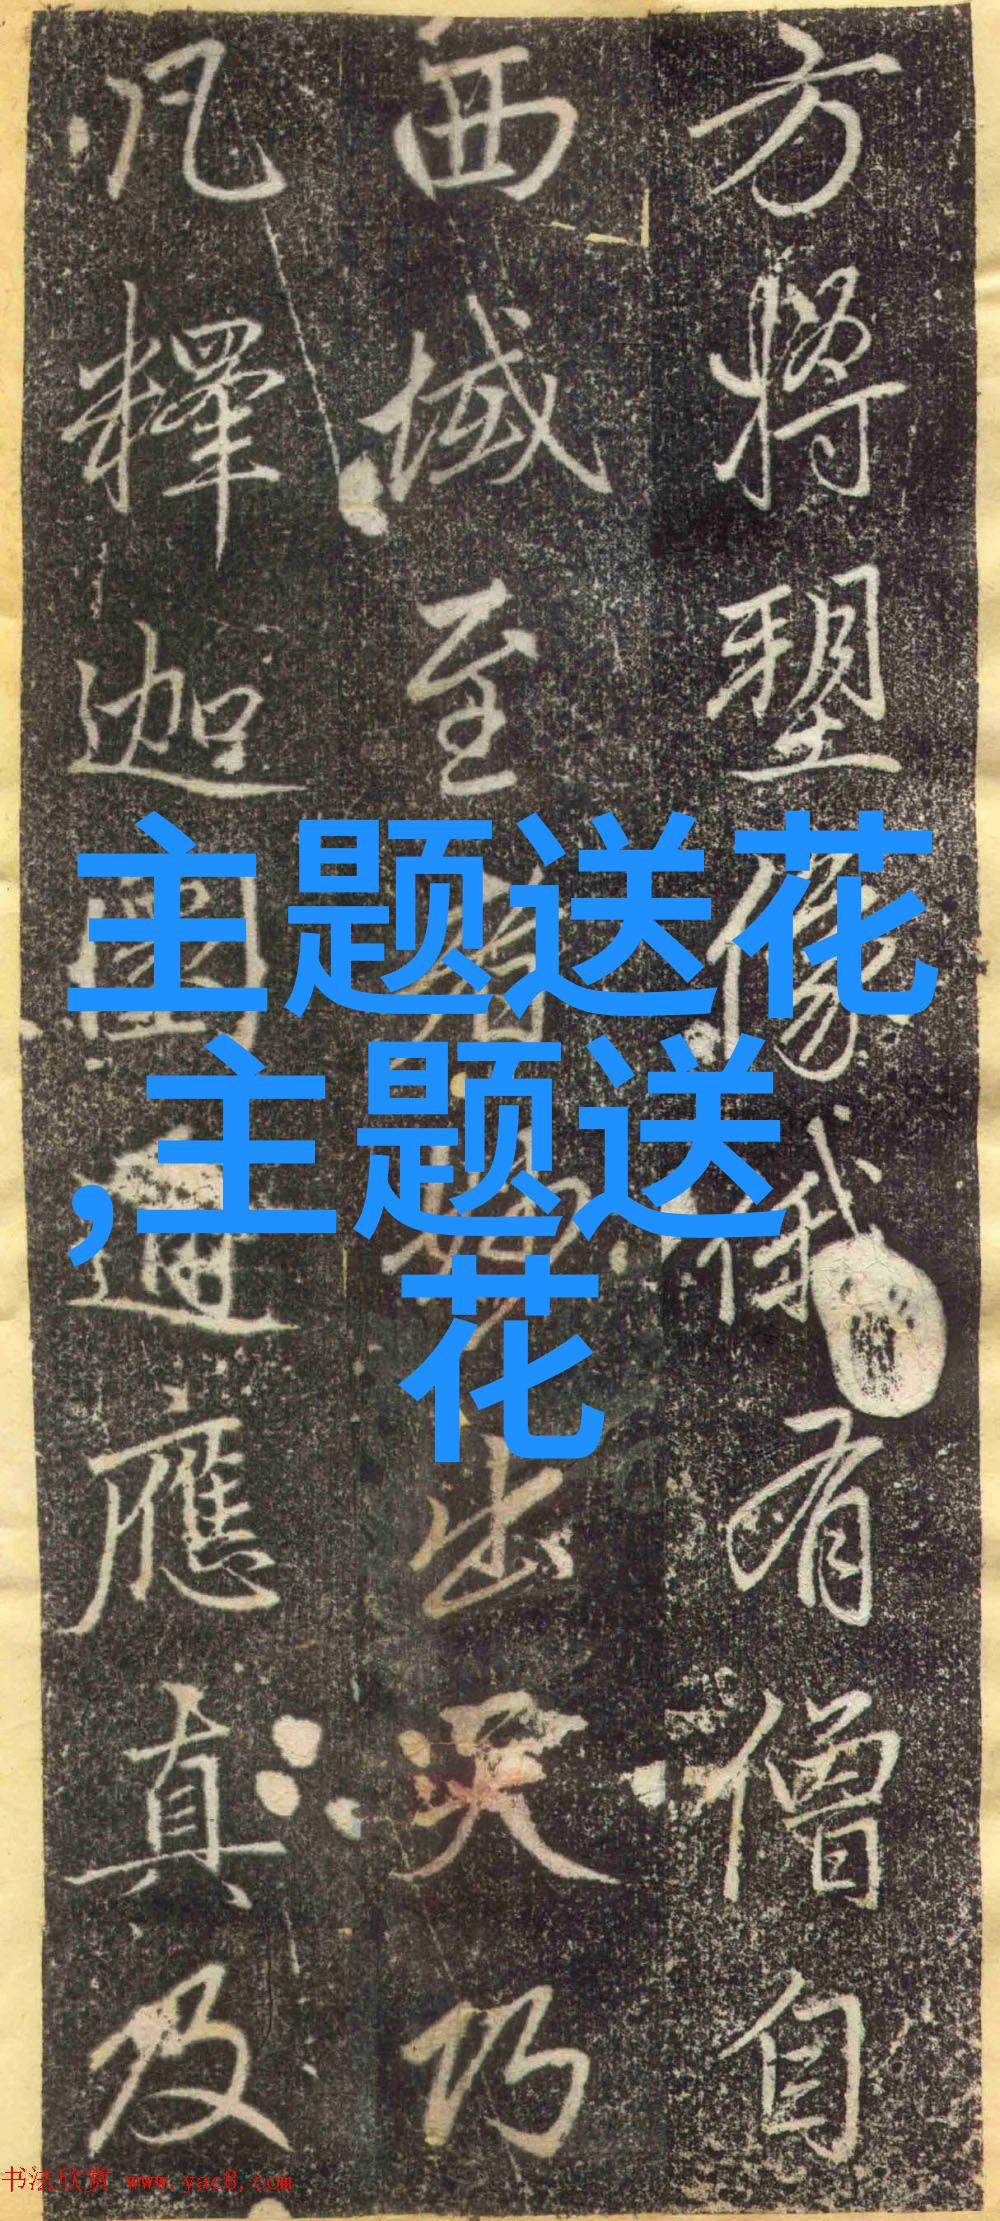 方將塑像俄有僧自
西域至出乃
凡釋迦應真及
主题送花
,主题送
花
书法欣赏 www.yac8.com